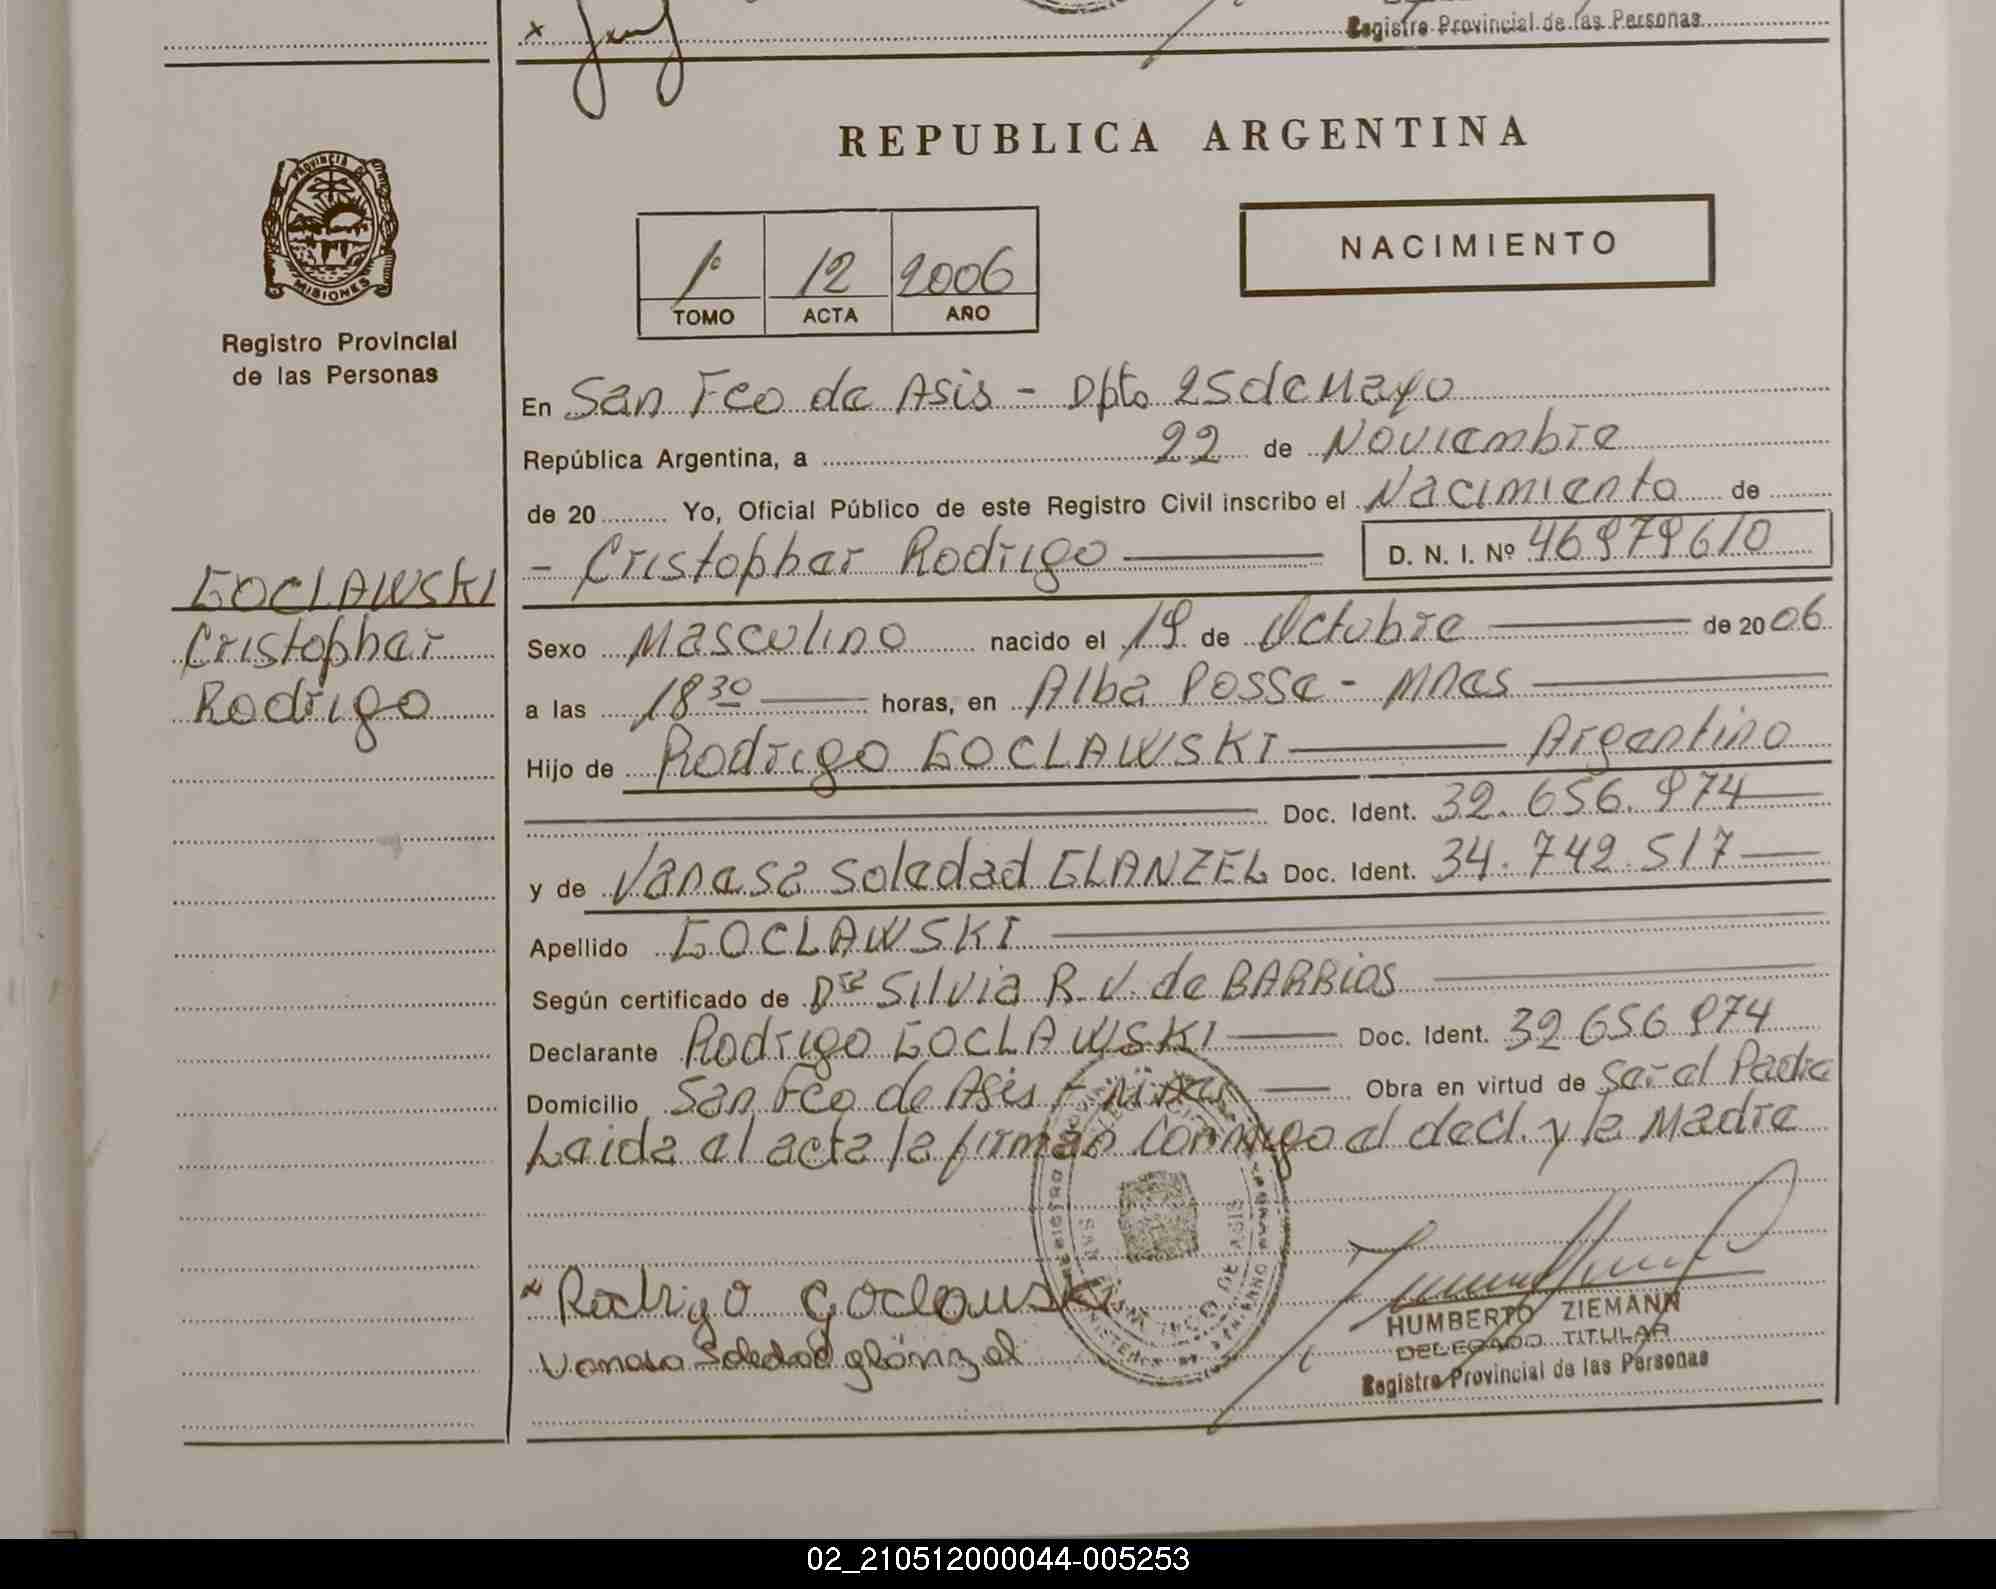 x
Registro Provincial de las Personas
REPUBLICA ARGENTINA
PROVINCIA DE
MISIONES
Registro Provincial
de las Personas
1º 12 2006
TOMO ACTA AÑO
NACIMIENTO
En San Fco de Asis - Dpto 25 de Mayo
República Argentina, a 22 de Noviembre
de 20 Yo, Oficial Público de este Registro Civil inscribo el Nacimiento de
- Cristopher Rodrigo D. N. I. Nº 46979610
GOCLAWSKI
Cristopher
Rodrigo
Sexo Masculino nacido el 19 de Octubre de 2006
a las 18 30 horas, en Alba Posse - Mnes
Hijo de Rodrigo GOCLAWSKI Argentino
Doc. Ident. 32.656.974
y de Vanesa Soledad GLANZEL Doc. Ident. 34.742.517
Apellido GOCLAWSKI
Según certificado de Dra Silvia R. V. de BARRIOS
Declarante Rodrigo GOCLAWSKI Doc. Ident. 32.656.974
Domicilio San Fco de Asis - Mnes Obra en virtud de Ser el Padre
Leida el acta la firman conmigo el decl. y la Madre
x Rodrigo Goclawski
Vanesa Soledad glänzel
HUMBERTO ZIEMANN
DELEGADO TITULAR
Registro Provincial de las Personas
02_210512000044-005253